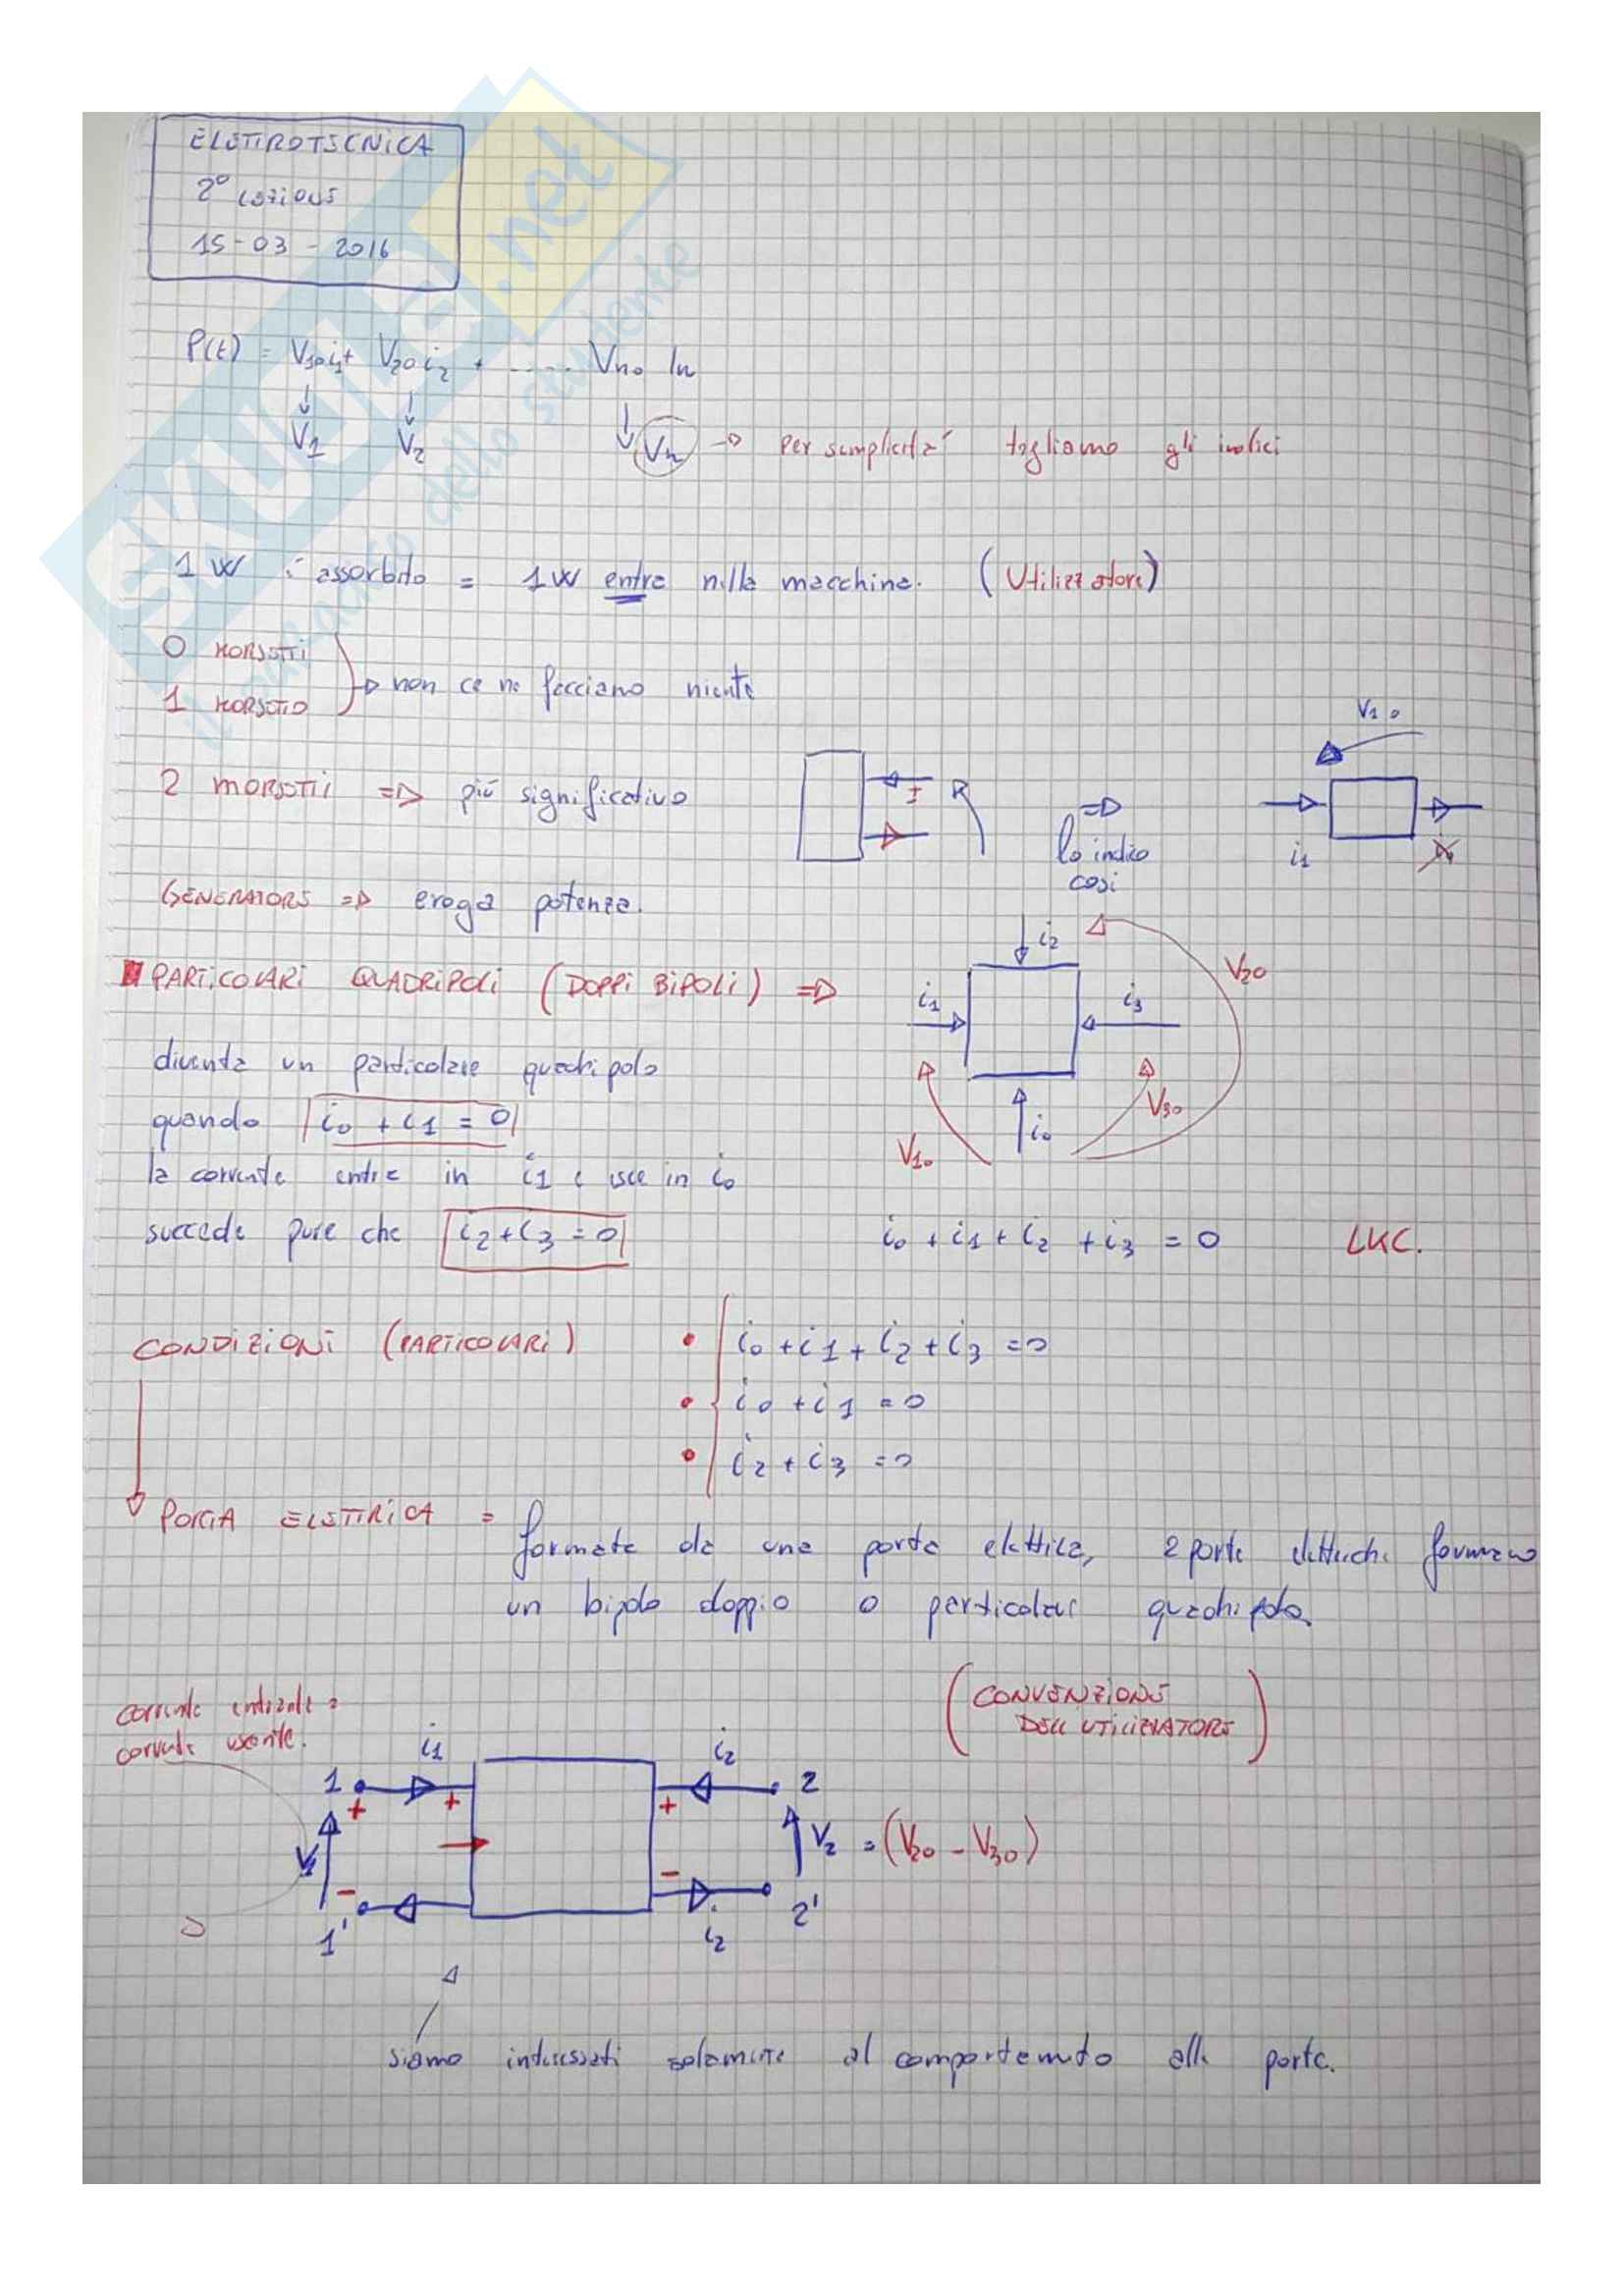 ELETTROTECNICA
2° LEZIONE
15-03-2016
P(t) = V10 i1 + V20 i2 + .... Vn0 In
V1 V2 Vn → per semplicità togliamo gli indici
1 W è assorbito = 1W entra nella macchina. (Utilizzatore)
0 MORSETTI
1 MORSETTO
non ce ne facciamo niente
V10
2 MORSETTI => più significativo
I
=> lo indico così
i1
GENERATORE => eroga potenza.
PARTICOLARI QUADRIPOLI (DOPPI BIPOLI) =>
i2
V20
i1
i3
diventa un particolare quadripolo
quando i0 + i1 = 0
V10
i0
V30
la corrente entra in i1 e esce in i0
succede pure che i2+i3 = 0
i0 + i1 + i2 + i3 = 0 LKC.
CONDIZIONI (PARTICOLARI)
i0 + i1 + i2 + i3 = 0
i0 + i1 = 0
i2 + i3 = 0
PORTA ELETTRICA = formata da una porta elettrica, 2 porte elettriche formano
un bipolo doppio o particolare quadripolo.
(CONVENZIONE
DELL'UTILIZZATORE)
corrente entrante =
corrente uscente.
i1 i2
1 + + + 2
V1 V2 = (V20 - V30)
- -
1' 2'
i2
siamo interessati solamente al comportamento alle porte.
SKUOLA.net
il paradiso dello studente